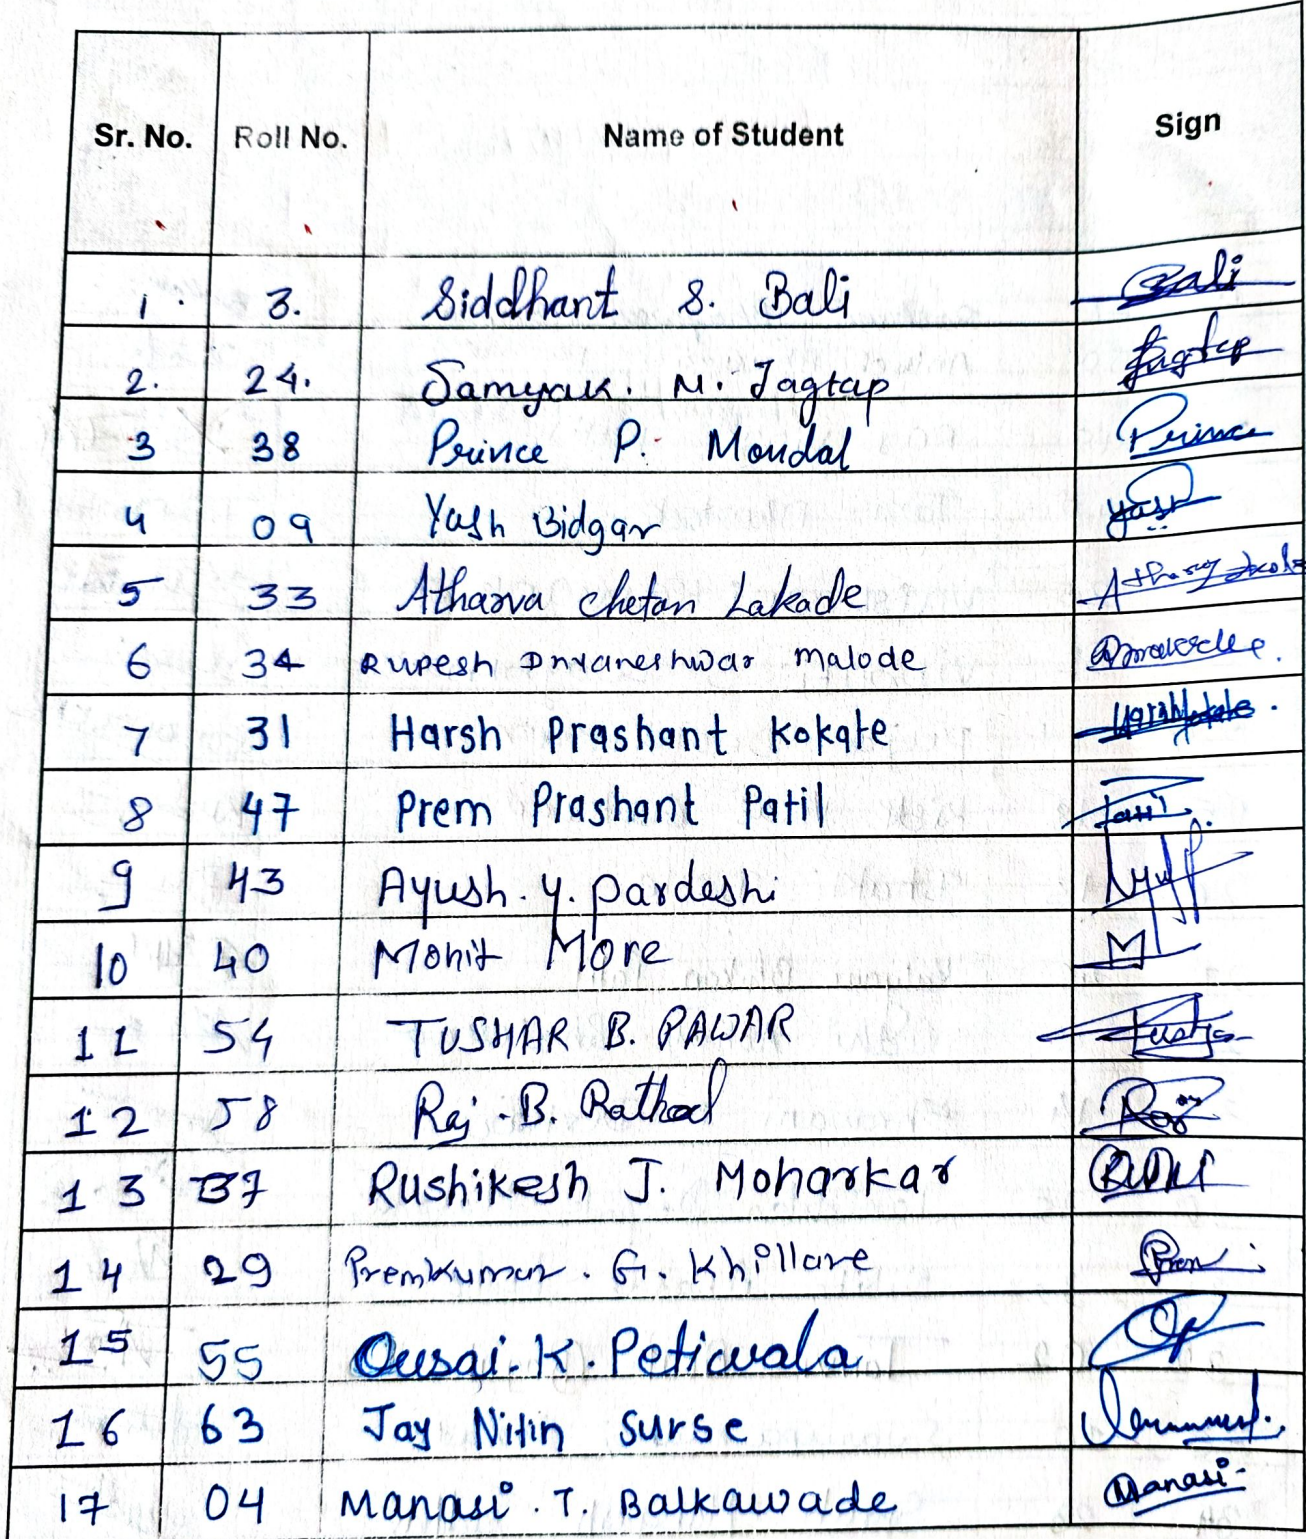 Sr. No. Roll No. Name of Student Sign
1. 3. Siddhant S. Bali Bali
2. 24. Samyak. M. Jagtap Jagtap
3 38 Prince P. Mondal Prince
4 09 Yash Bidgar yash
5 33 Atharva Chetan Lakade
6 34 Rupesh Dnyaneshwar Malode
7 31 Harsh Prashant Kokate
8 47 Prem Prashant Patil Patil
9 43 Ayush. Y. Pardeshi
10 40 Mohit More
11 54 TUSHAR B. PAWAR
12 58 Raj. B. Rathod Raj
13 37 Rushikesh J. Moharkar
14 29 Premkumar. G. Khillare Prem
15 55 Qusai. K. Petiwala
16 63 Jay Nitin Surse
17 04 Manasi. T. Balkawade Manasi